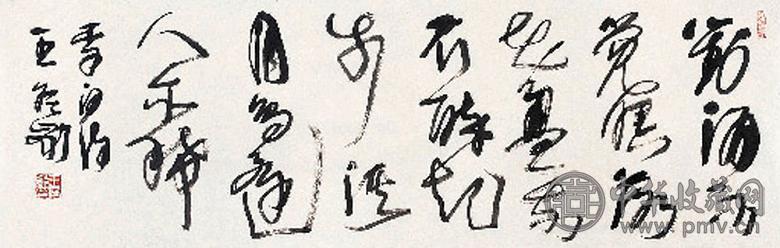 對酒不
覺暝落
花盈我
衣醉起
步溪
月鳥還
人亦稀
李白詩
王冬齡
中华收藏网
www.pmv.cn